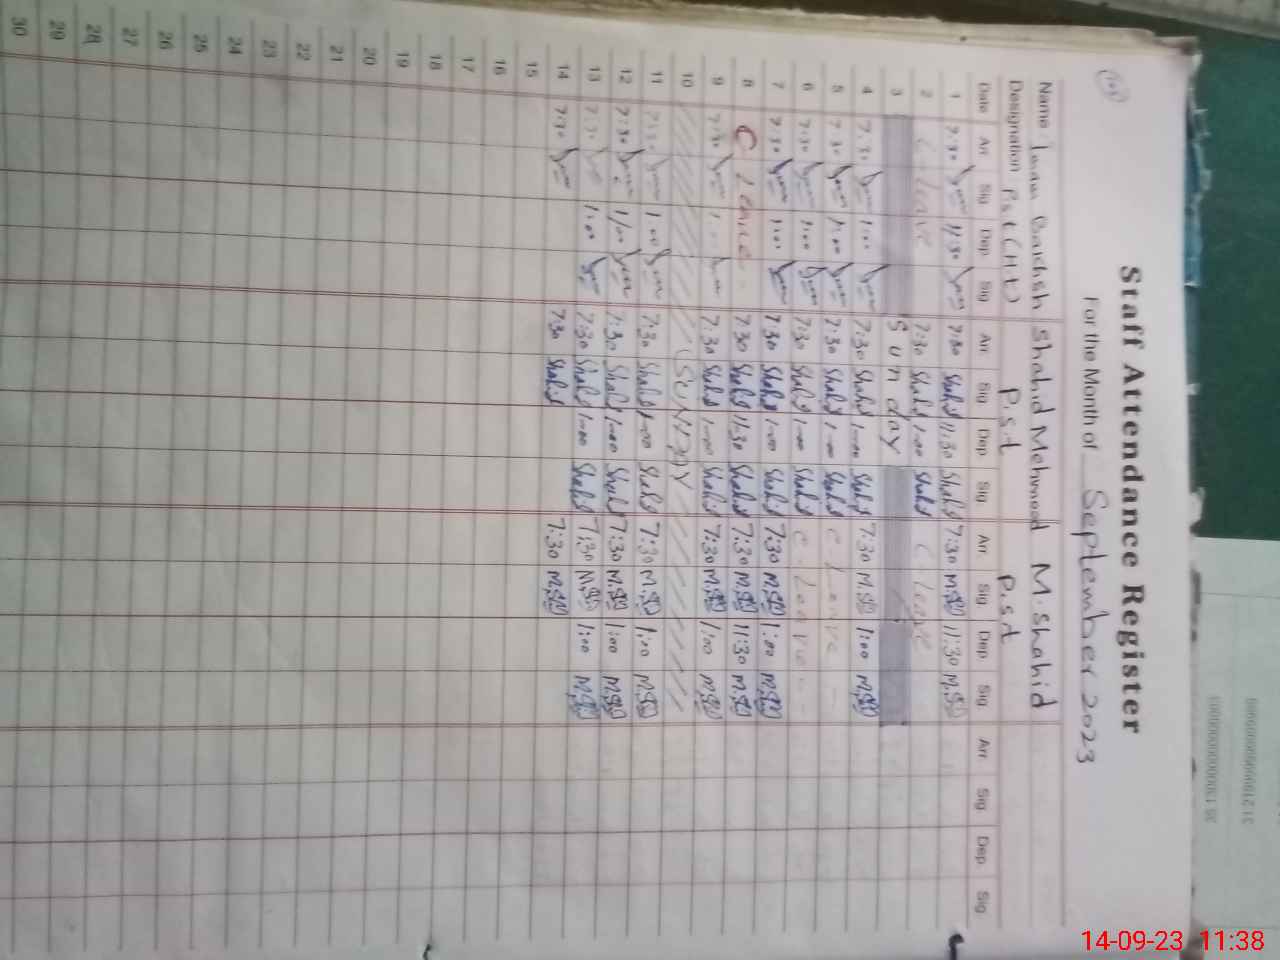 Staff Attendance Register
For the Month of September 2023
Name : Imam Bakhsh Shahid Mehmood M. Shahid
Designation P.S.t (H.t) P.S.t P.S.t
Date Arr Sig Dep Sig Arr Sig Dep Sig Arr Sig Dep Sig Arr Sig Dep Sig
1 7:30 11:30 7:30 Shahid 11:30 Shahid 7:30 11:30
2 C Leave 7:30 Shahid 1:00 Shahid C Leave
3 Sunday
4 7:30 1:00 7:30 Shahid 1:00 Shahid 7:30 1:00
5 7:30 1:00 7:30 Shahid 1:00 Shahid C. Leave
6 7:30 1:00 7:30 Shahid 1:00 Shahid C. Leave
7 7:30 1:00 7:30 Shahid 1:00 Shahid 7:30 1:00
8 C. Leave 7:30 Shahid 11:30 Shahid 7:30 11:30
9 7:30 1:00 7:30 Shahid 1:00 Shahid 7:30 1:00
10 (SUNDAY
11 7:30 1:00 7:30 Shahid 1:00 Shahid 7:30 1:00
12 7:30 1:00 7:30 Shahid 1:00 Shahid 7:30 1:00
13 7:30 1:00 7:30 Shahid 1:00 Shahid 7:30 1:00
14 7:30 7:30 Shahid 7:30
15
16
17
18
19
20
21
22
23
24
25
26
27
28
29
30
14-09-23 11:38